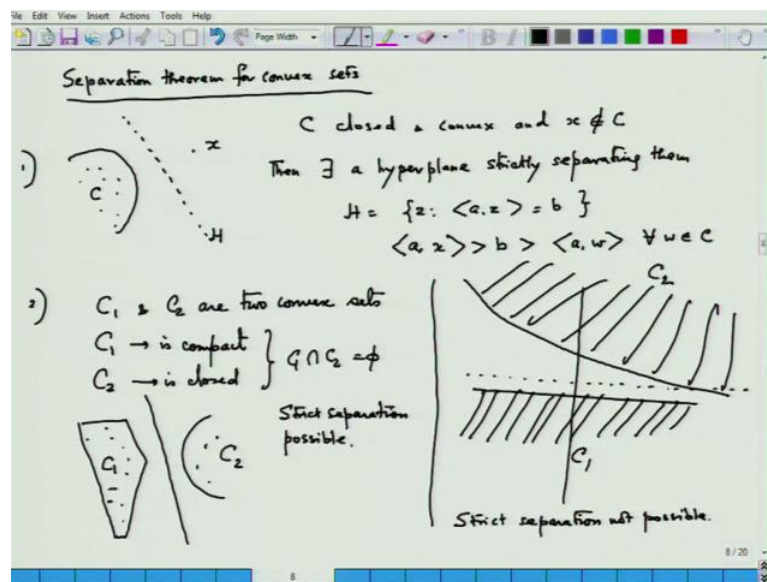 File Edit View Insert Actions Tools Help
Page Width
B I
Separation theorem for convex sets
1)
C
x
H
C closed & convex and x ∉ C
Then ∃ a hyperplane strictly separating them
H = {z: <a,z> = b }
<a, x> > b > <a, w> ∀ w ∈ C
2)
C₁ & C₂ are two convex sets
C₁ → is compact
C₂ → is closed
C₁ ∩ C₂ = ϕ
Strict separation
possible.
C₁
C₂
C₂
C₁
Strict separation not possible.
8/20
8